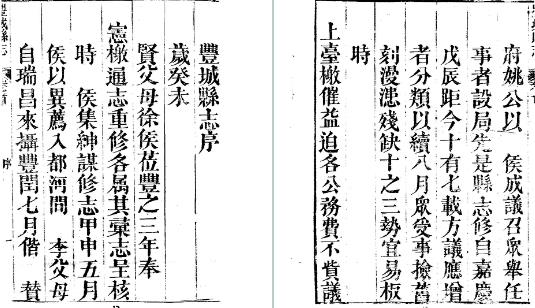 豐城縣志序
歲癸未
賢父母徐侯蒞豐之三年奉
憲檄通志重修各属其彙志呈核
時　侯集紳謀修志甲申五月
侯以異薦入都河間　李父母
自瑞昌來攝豐閏七月偕　贊
序
府姚公以　侯成議召眾舉任
事者設局先是縣志修自嘉慶
戊辰距今十有七載方議應增
者分類以續八月眾受事撿舊
刻漫漶殘缺十之三勢宜易板
時
上臺檄催益迫各公務費不貲議